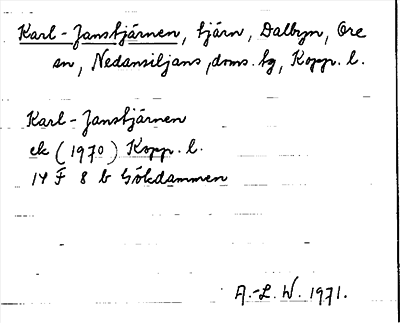 Karl-Janstjärnen, tjärn, Dalbyn, Ore
sn, Nedansiljans doms. tg, Kopp. l.
Karl-Janstjärnen
ek (1970) Kopp. l.
14 F 8 b Gökdammen
A.-L. W. 1971.